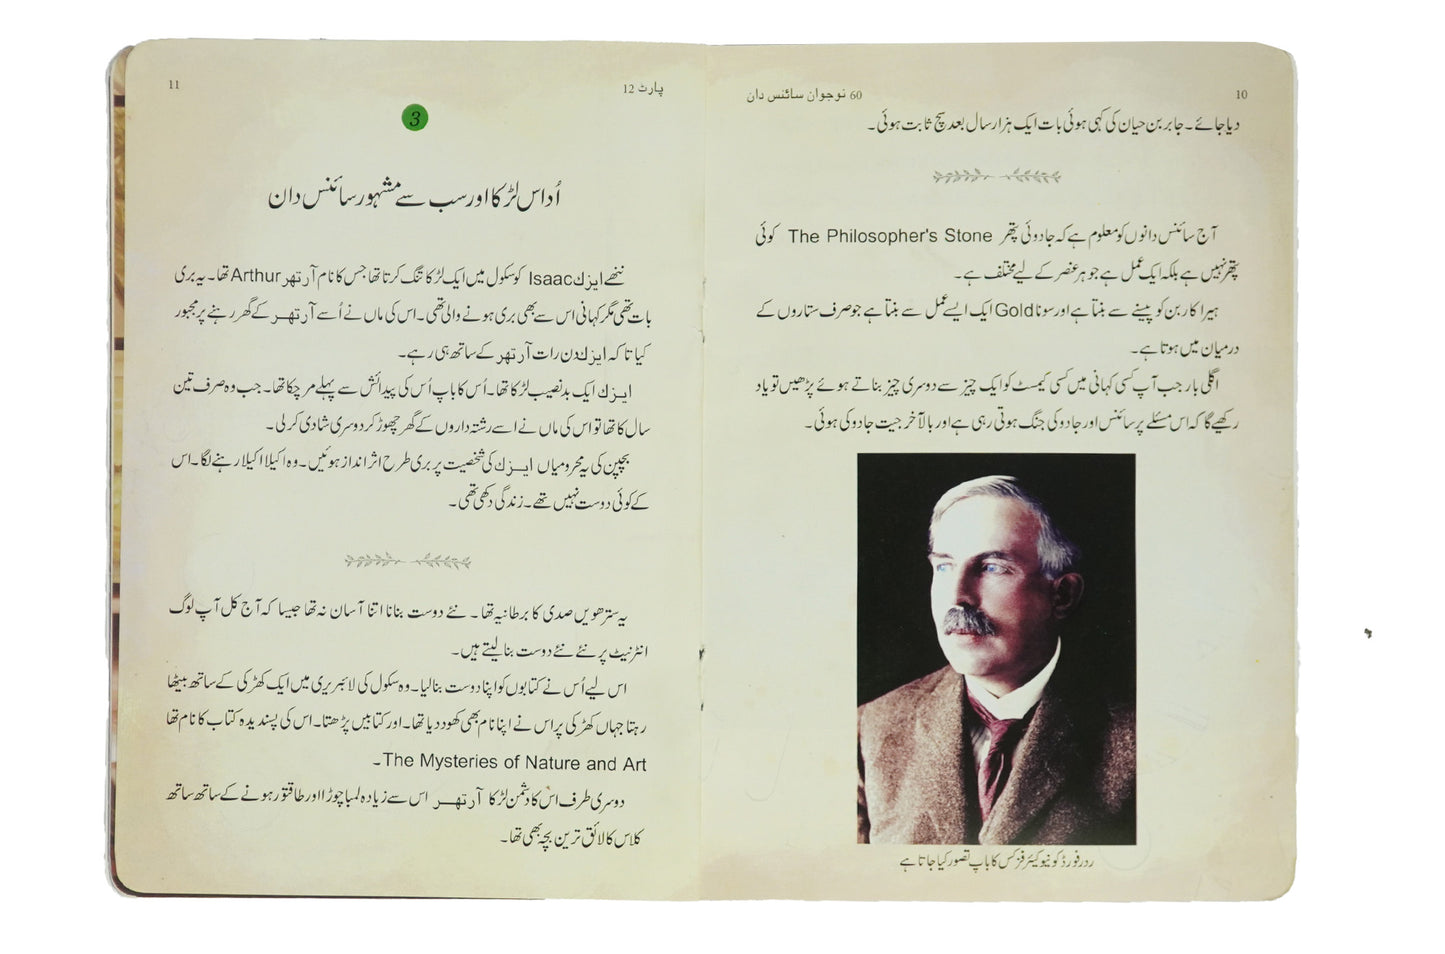 10
60 نوجوان سائنس دان
دیا جائے۔ جابر بن حیان کی کہی ہوئی بات ایک ہزار سال بعد سچ ثابت ہوئی۔
آج سائنس دانوں کو معلوم ہے کہ جادوئی پتھر The Philosopher's Stone کوئی
پتھر نہیں ہے بلکہ ایک عمل ہے جو ہر عنصر کے لیے مختلف ہے۔
ہیرا کاربن کو پیسنے سے بنتا ہے اور سونا Gold ایک ایسے عمل سے بنتا ہے جو صرف ستاروں کے
درمیان میں ہوتا ہے۔
اگلی بار جب آپ کسی کہانی میں کسی کیمسٹ کو ایک چیز سے دوسری چیز بناتے ہوئے پڑھیں تو یاد
رکھیے گا کہ اس مسئلے پر سائنس اور جادو کی جنگ ہوتی رہی ہے اور بالآخر جیت جادو کی ہوئی۔
ردرفورڈ کو نیوکلیئر فزکس کا باپ تصور کیا جاتا ہے
پارٹ 12
11
3
اُداس لڑکا اور سب سے مشہور سائنس دان
ننھے ایزک Isaac کو سکول میں ایک لڑکا تنگ کرتا تھا جس کا نام آرتھر Arthur تھا۔ یہ بری
بات تھی مگر کہانی اس سے بھی بری ہونے والی تھی۔ اس کی ماں نے اُسے آرتھر کے گھر رہنے پر مجبور
کیا تا کہ ایزک دن رات آرتھر کے ساتھ ہی رہے۔
ایزک ایک بدنصیب لڑکا تھا۔ اُس کا باپ اُس کی پیدائش سے پہلے مر چکا تھا۔ جب وہ صرف تین
سال کا تھا تو اس کی ماں نے اسے رشتہ داروں کے گھر چھوڑ کر دوسری شادی کر لی۔
بچپن کی یہ محرومیاں ایزک کی شخصیت پر بری طرح اثر انداز ہوئیں۔ وہ اکیلا اکیلا رہنے لگا۔ اس
کے کوئی دوست نہیں تھے۔ زندگی دکھی تھی۔
یہ سترھویں صدی کا برطانیہ تھا۔ نئے دوست بنانا اتنا آسان نہ تھا جیسا کہ آج کل آپ لوگ
انٹرنیٹ پر نئے نئے دوست بنا لیتے ہیں۔
اس لیے اُس نے کتابوں کو اپنا دوست بنا لیا۔ وہ سکول کی لائبریری میں ایک کھڑکی کے ساتھ بیٹھا
رہتا جہاں کھڑکی پر اس نے اپنا نام بھی کھود دیا تھا۔ اور کتابیں پڑھتا۔ اس کی پسندیدہ کتاب کا نام تھا
The Mysteries of Nature and Art۔
دوسری طرف اس کا دشمن لڑکا آرتھر اس سے زیادہ لمبا چوڑا اور طاقتور ہونے کے ساتھ ساتھ
کلاس کا لائق ترین بچہ بھی تھا۔